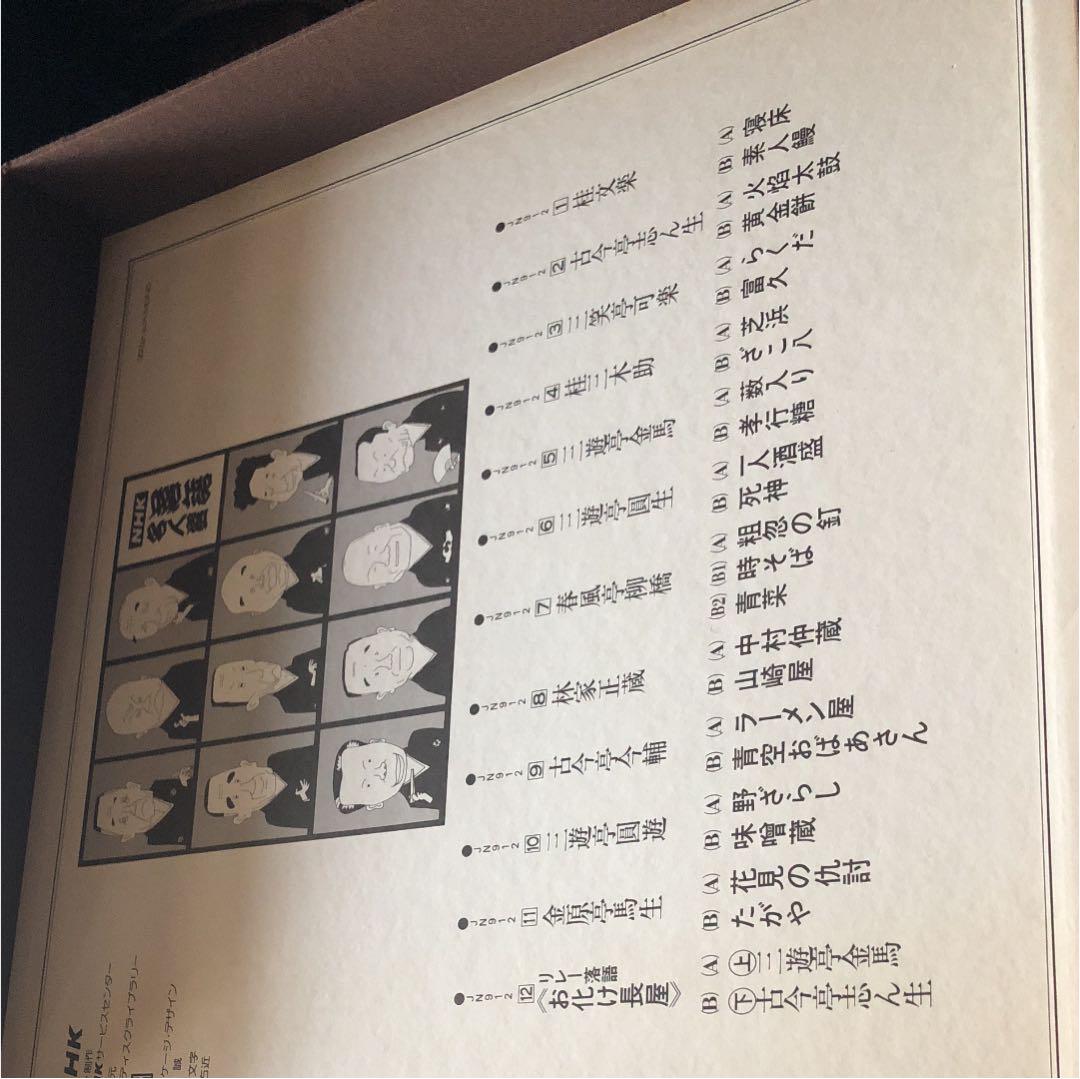 NHK
名人
落語
●JN912 1 桂文楽
(A) 寝床
(B) 素人鰻
●JN912 2 古今亭志ん生
(A) 火焔太鼓
(B) 黄金餅
●JN912 3 三笑亭可楽
(A) らくだ
(B) 富久
●JN912 4 桂三木助
(A) 芝浜
(B) ざこ八
●JN912 5 三遊亭金馬
(A) 薮入り
(B) 孝行糖
●JN912 6 三遊亭圓生
(A) 一人酒盛
(B) 死神
●JN912 7 春風亭柳橋
(A) 粗忽の釘
(B1) 時そば
(B2) 青菜
●JN912 8 林家正蔵
(A) 中村仲蔵
(B) 山崎屋
●JN912 9 古今亭今輔
(A) ラーメン屋
(B) 青空おばあさん
●JN912 10 三遊亭圓遊
(A) 野ざらし
(B) 味噌蔵
●JN912 11 金原亭馬生
(A) 花見の仇討
(B) たがや
●JN912 12 リレー落語
《お化け長屋》
(A) 上 三遊亭金馬
(B) 下 古今亭志ん生
HK
制作
Kサービスセンター
元
ディスクライブラリー
ケージ・デザイン
誠
文字
右近